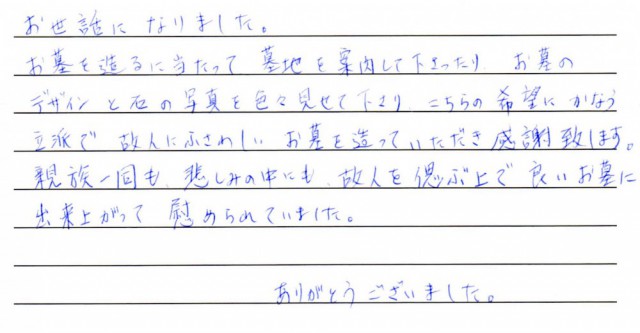 お世話になりました。
お墓を造るに当たって 墓地を案内して下さったり お墓の
デザインと石の写真を色々見せて下さり、こちらの希望にかなう
立派で 故人にふさわしい お墓を造っていただき 感謝致します。
親族一同も、悲しみの中にも、故人を偲ぶ上で 良いお墓に
出来上がって 慰められていました。
ありがとうございました。